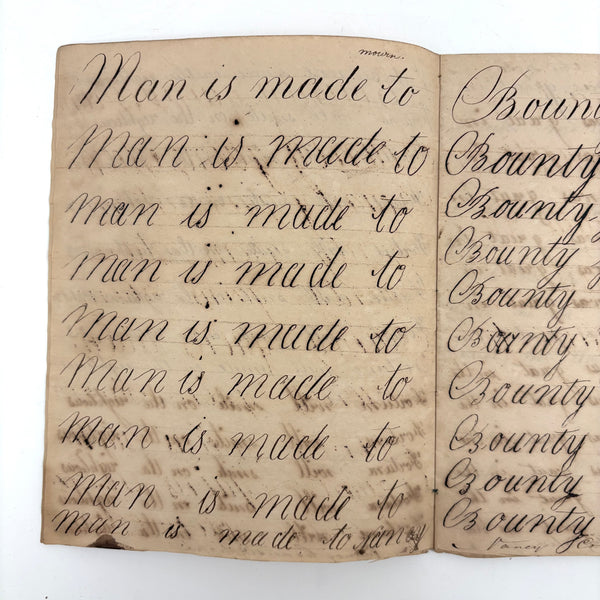 mourn.
Man is made to
Man is made to
man is made to
man is made to
Man is made to
Man is made to
Man is made to
Man is made to
Man is made to
Boun
Bounty
Bounty
Bounty
Bounty
Bounty
Bounty
Bounty
Bounty
Bounty